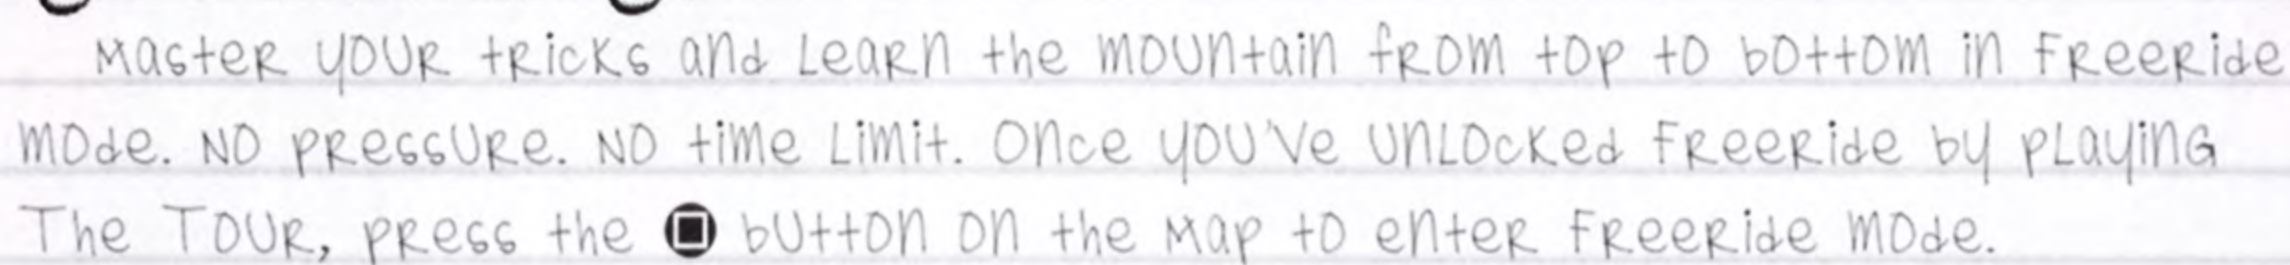 Master your tricks and Learn the mountain from top to bottom in Freeride
mode. No pressure. No time Limit. Once you've unlocked Freeride by playing
The Tour, press the button on the Map to enter Freeride mode.